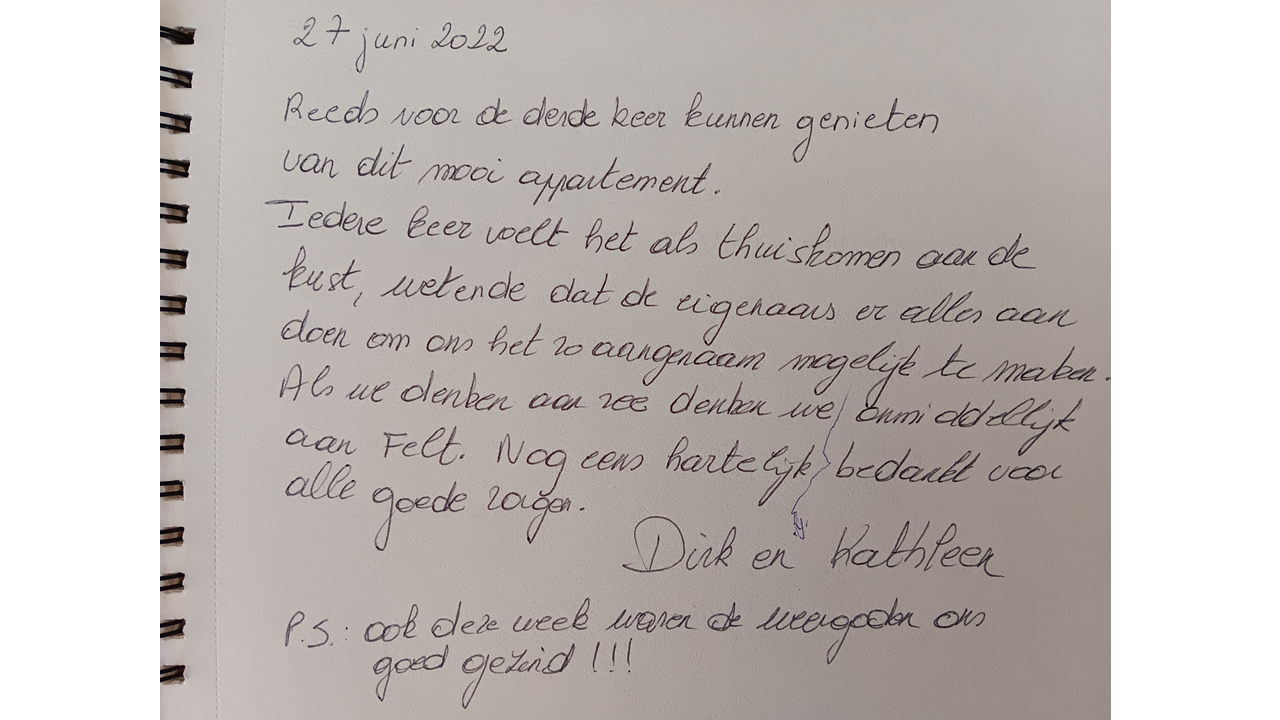 27 juni 2022
Reeds voor de derde keer kunnen genieten
van dit mooi appartement.
Iedere keer voelt het als thuiskomen aan de
kust, wetende dat de eigenaars er alles aan
doen om ons het zo aangenaam mogelijk te maken.
Als we denken aan zee denken we onmiddellijk
aan Felt. Nog eens hartelijk bedankt voor
alle goede zorgen.
Dirk en Kathleen
P.S.: ook deze week waren de weergoden ons
goed gezind !!!